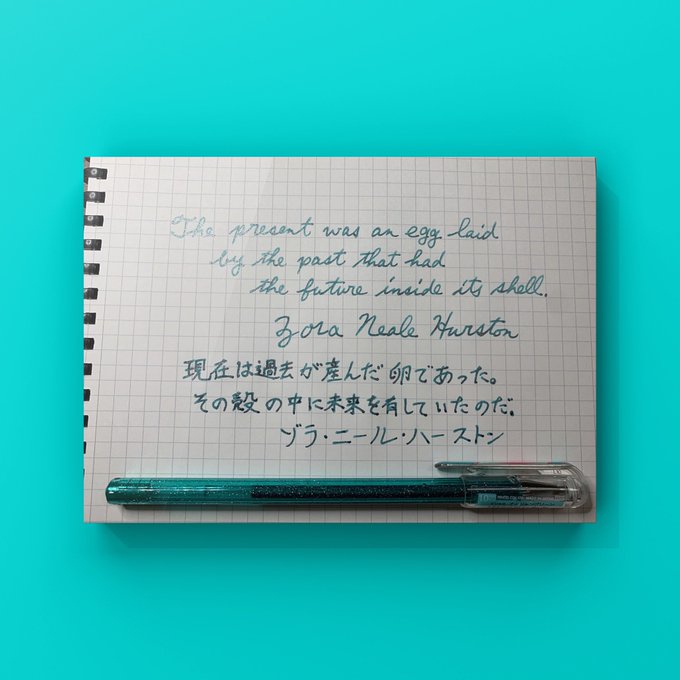 The present was an egg laid
by the past that had
the future inside its shell.
Zora Neale Hurston
現在は過去が産んだ卵であった。
その殻の中に未来を有していたのだ。
ゾラ・ニール・ハーストン